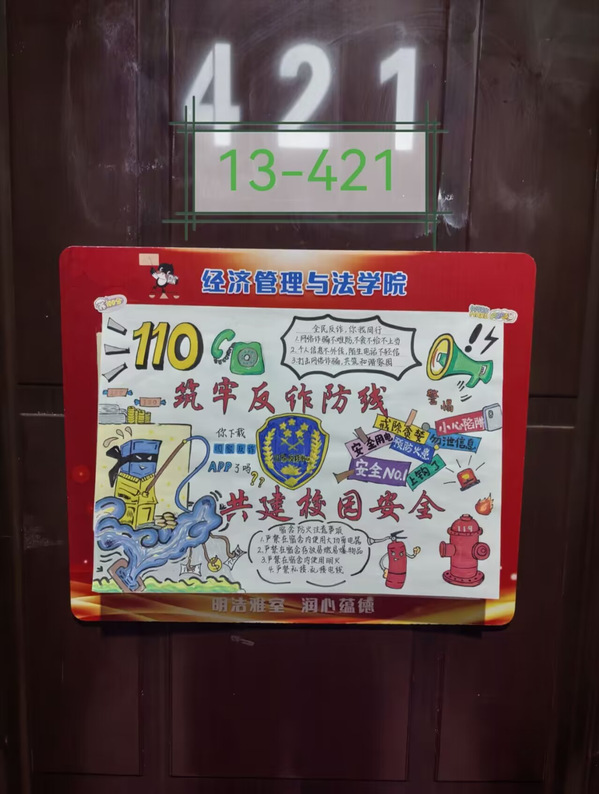 421
13-421
经济管理与法学院
110
全民反诈,你我同行
1.网络诈骗不难防,不贪不给不上当
2.个人信息不外传,陌生电话不轻信
3.打击网络诈骗,共筑和谐家园
筑牢反诈防线
警惕
小心陷阱
戒除贪婪
勿泄信息
安全用电
预防火患
安全NO.1
上钩了
你下载
国家反诈
APP了吗??
共建校园安全
宿舍防火注意事项
1.严禁在宿舍内使用大功率电器
2.严禁在宿舍存放易燃易爆物品
3.严禁在宿舍内使用明火
4.严禁私接、乱接电线
119
明洁雅室 润心蕴德